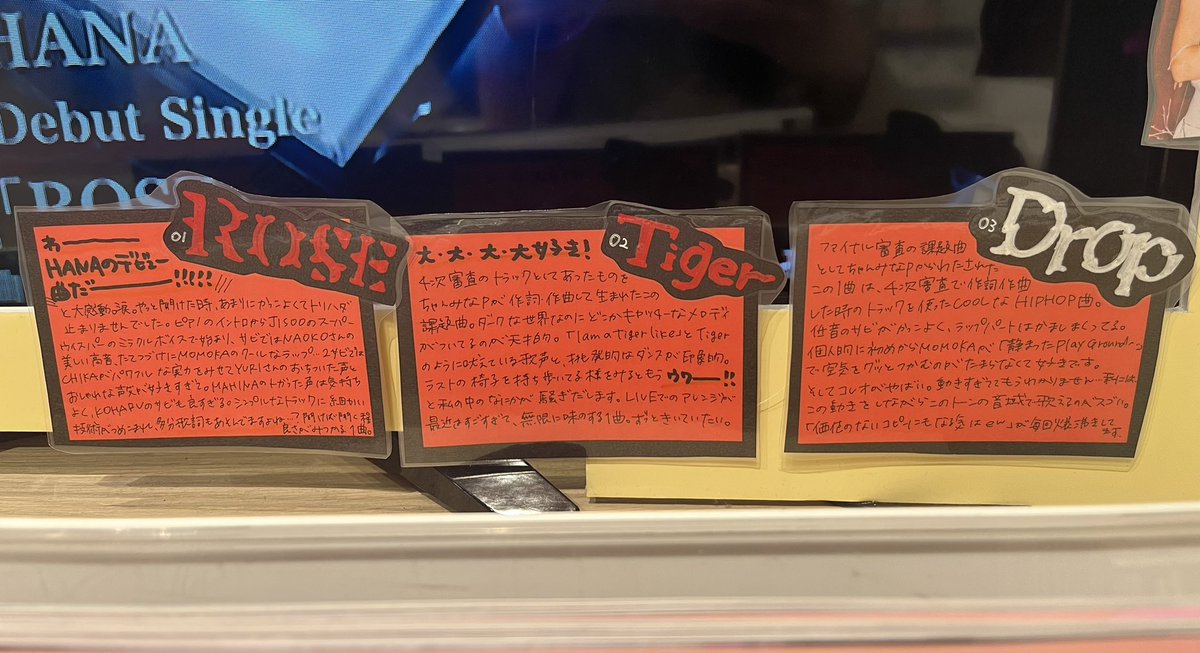 HANA
Debut Single
「ROSE
01 ROSE
わーーー
HANAのデビュー
曲だーー!!!!!
と大感動、涙。やっと聞けた時、あまりにかっこよくてトリハダ
止まりませんでした。ピアノのイントロからJISOOのスーパー
ウィスパーのミラクルボイスで始まり、サビではNAOKOさんの
美しい高音、たてつづけにMOMOKAのクールなラップ…2サビでは
CHIKAがパワフルな実力をみせてYURIさんのおちついた声と
おしゃれな声質が好きすぎて。MAHINAのトがった声は気持ち
よく、KOHARUのサビも良すぎる。シンプルなトラックに細かい
技術がつめこまれ、
良さがみつかる1曲。
02 Tiger
大・大・大・大好き!
4次審査のトラックとしてあったものを
ちゃんみなPが作詞・作曲して生まれたこの
課題曲。ダークな世界なのにどこかキャッチーなメロディ
がついてるのが天才的。「I am a Tiger like」とTiger
のように吠えている歌声と、挑発的なダンスが印象的。
ラストの椅子を持ち歩いてる様をみるともう ウワー!!
と私の中のなにかが騒ぎだします。LIVEでのアレンジが
最近はすごすぎて、無限に味のする1曲。ずっときいていたい。
03 Drop
ファイナル審査の課題曲
としてちゃんみなPからわたされた
この1曲は、4次審査で作詞作曲
した時のトラックを使ったCOOLなHIPHOP曲。
個人的に初めからMOMOKAが「静まったPlay Ground〜」
で空気をグッとつかむのがたまらなくて好きです。
そしてコレオがやばい。動きすぎてもうわかりません…私には
この動きをしながらこのトーンの音域で歌えるのがスゴい。